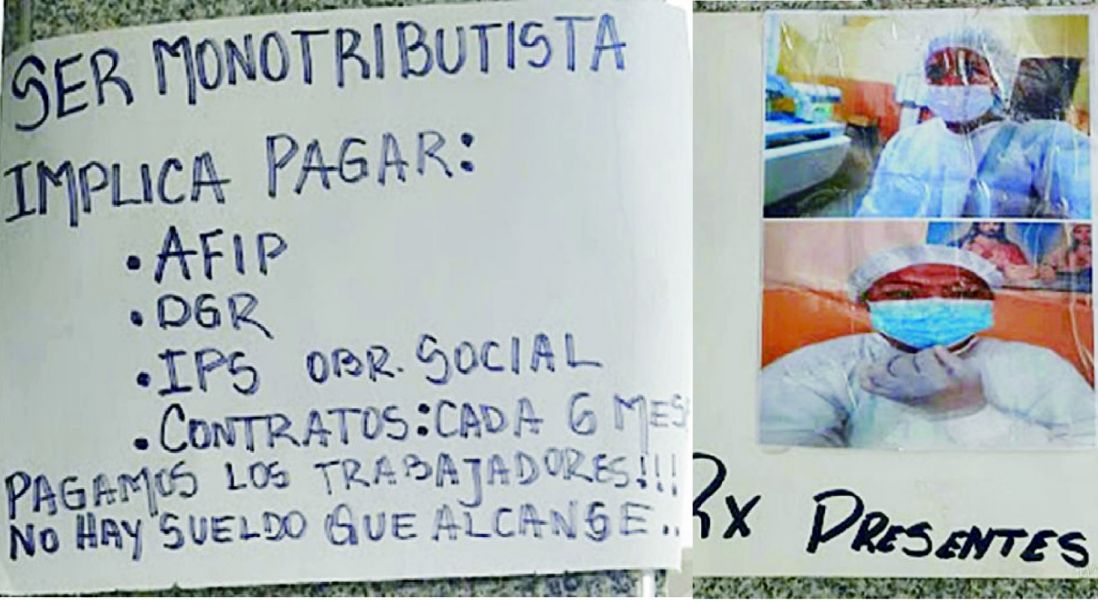 SER MONOTRIBUTISTA
IMPLICA PAGAR:
• AFIP
• DGR
• IPS OBR. SOCIAL
• CONTRATOS: CADA 6 MES
PAGAMOS LOS TRABAJADORES!!!
NO HAY SUELDO QUE ALCANSE..
Rx PRESENTES